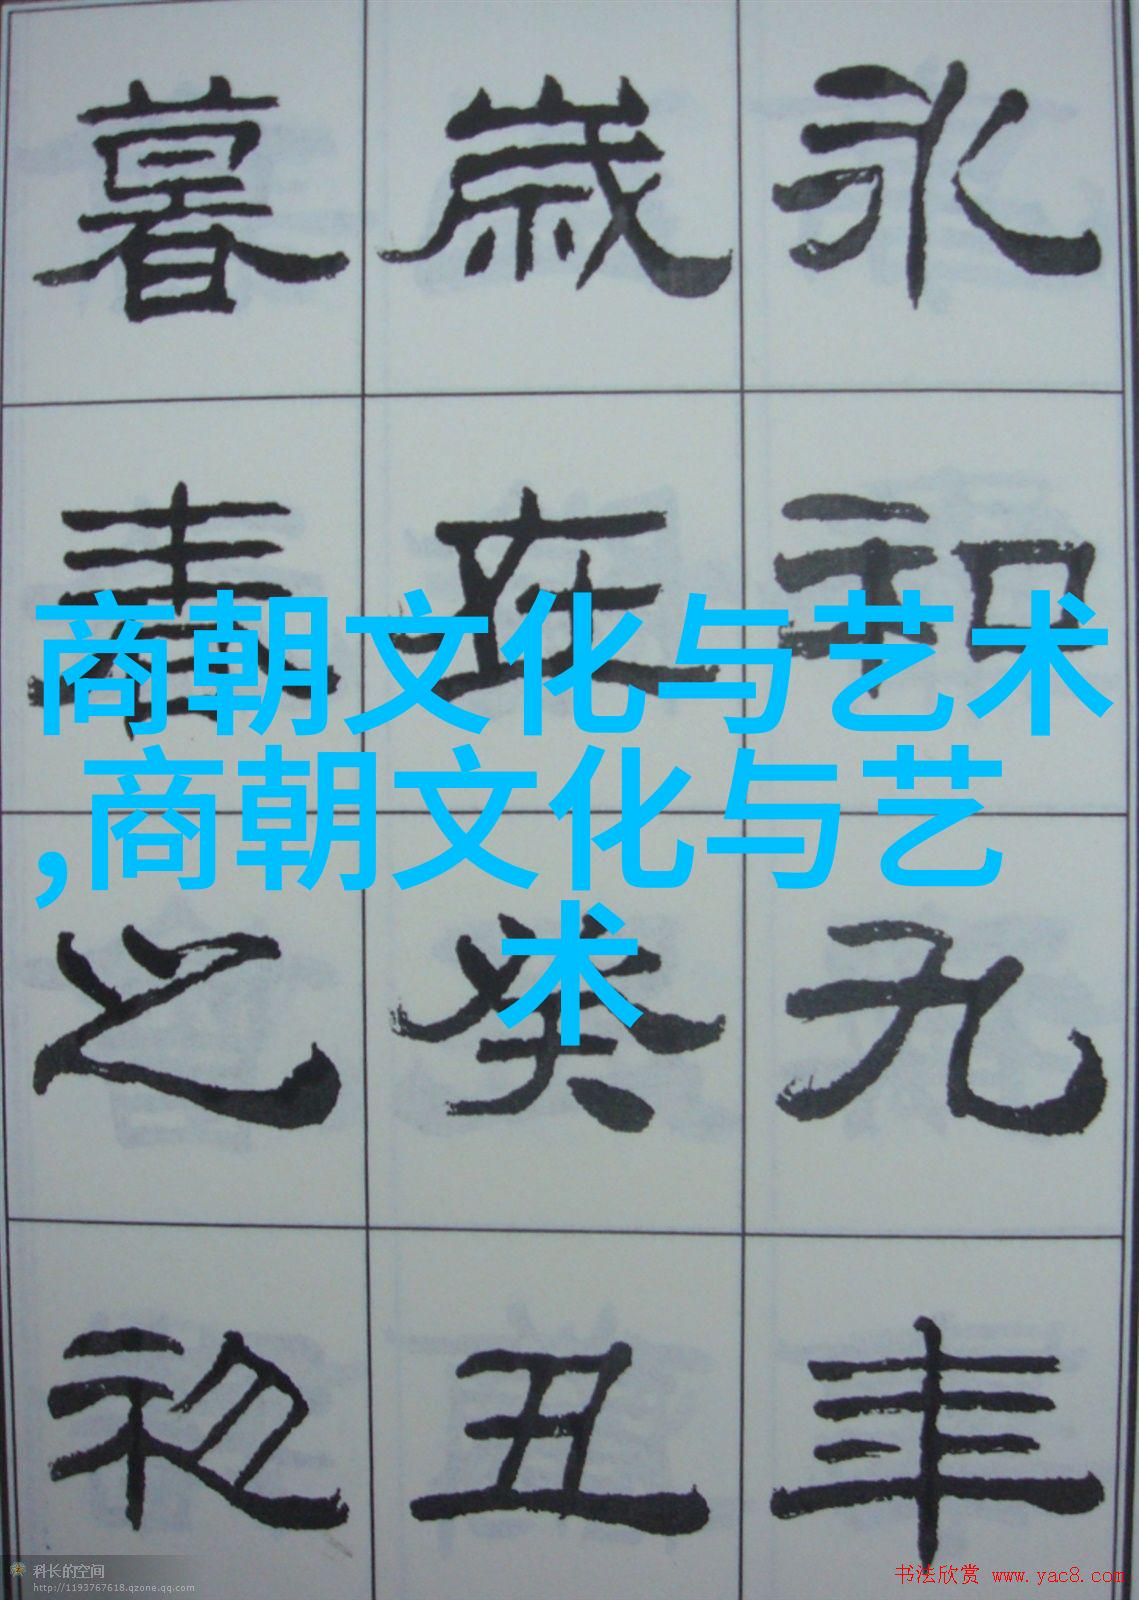 永和九年
歲在癸丑
暮春之初
商朝文化与艺术
,商朝文化与艺
术
科长的空间
http://1193767618.qzone.qq.com
书法欣赏 www.yac8.com